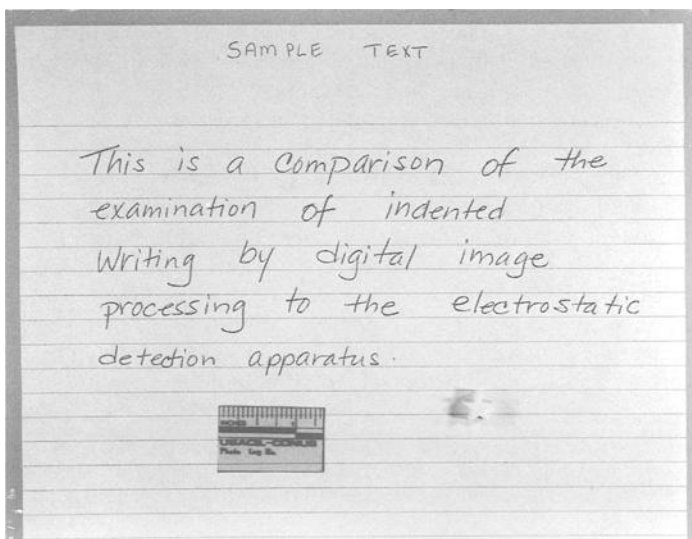 SAMPLE TEXT
This is a Comparison of the
examination of indented
Writing by digital image
processing to the electrostatic
detection apparatus.
INCHES 1
USACIL-CONUS
Photo Log No.